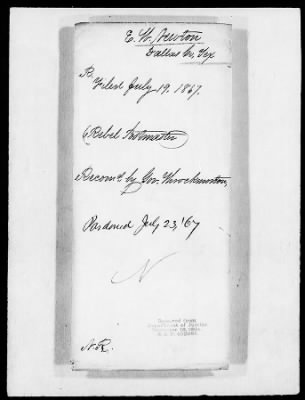 E. W. Newton
Dallas Co, Tex
R
Filed July 19, 1867.
Rebel Postmaster
Recomd by Gov. Throckmorton,
Pardoned July 23, '67
N
Received from
Department of Justice
N.R.